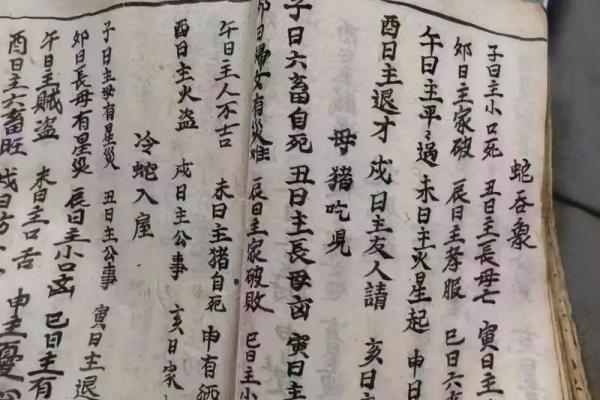 蛇吞象
子日主小口死 丑日主長母亡 寅日主
卯日主家破 辰日主孝服 巳日六
午日主平〻過 未日主火星起 申日
酉日主退才 戌日主友人請 亥日主
母猪吃児
子日六畜自死 丑日主長母凶 寅日主
卯日帰客有災难 辰日主家破敗 巳日主小
午日主人不吉 未日主猪自死 申有
酉日主火盗 戌日主公事 亥日家
冷蛇入屋
子日主母有星災 丑日主公事 寅日主退
卯日長母有星災 辰日主小口凶 巳日主有
午日主賊盗 未日主口舌 申主憂
酉日主六畜旺 戌日